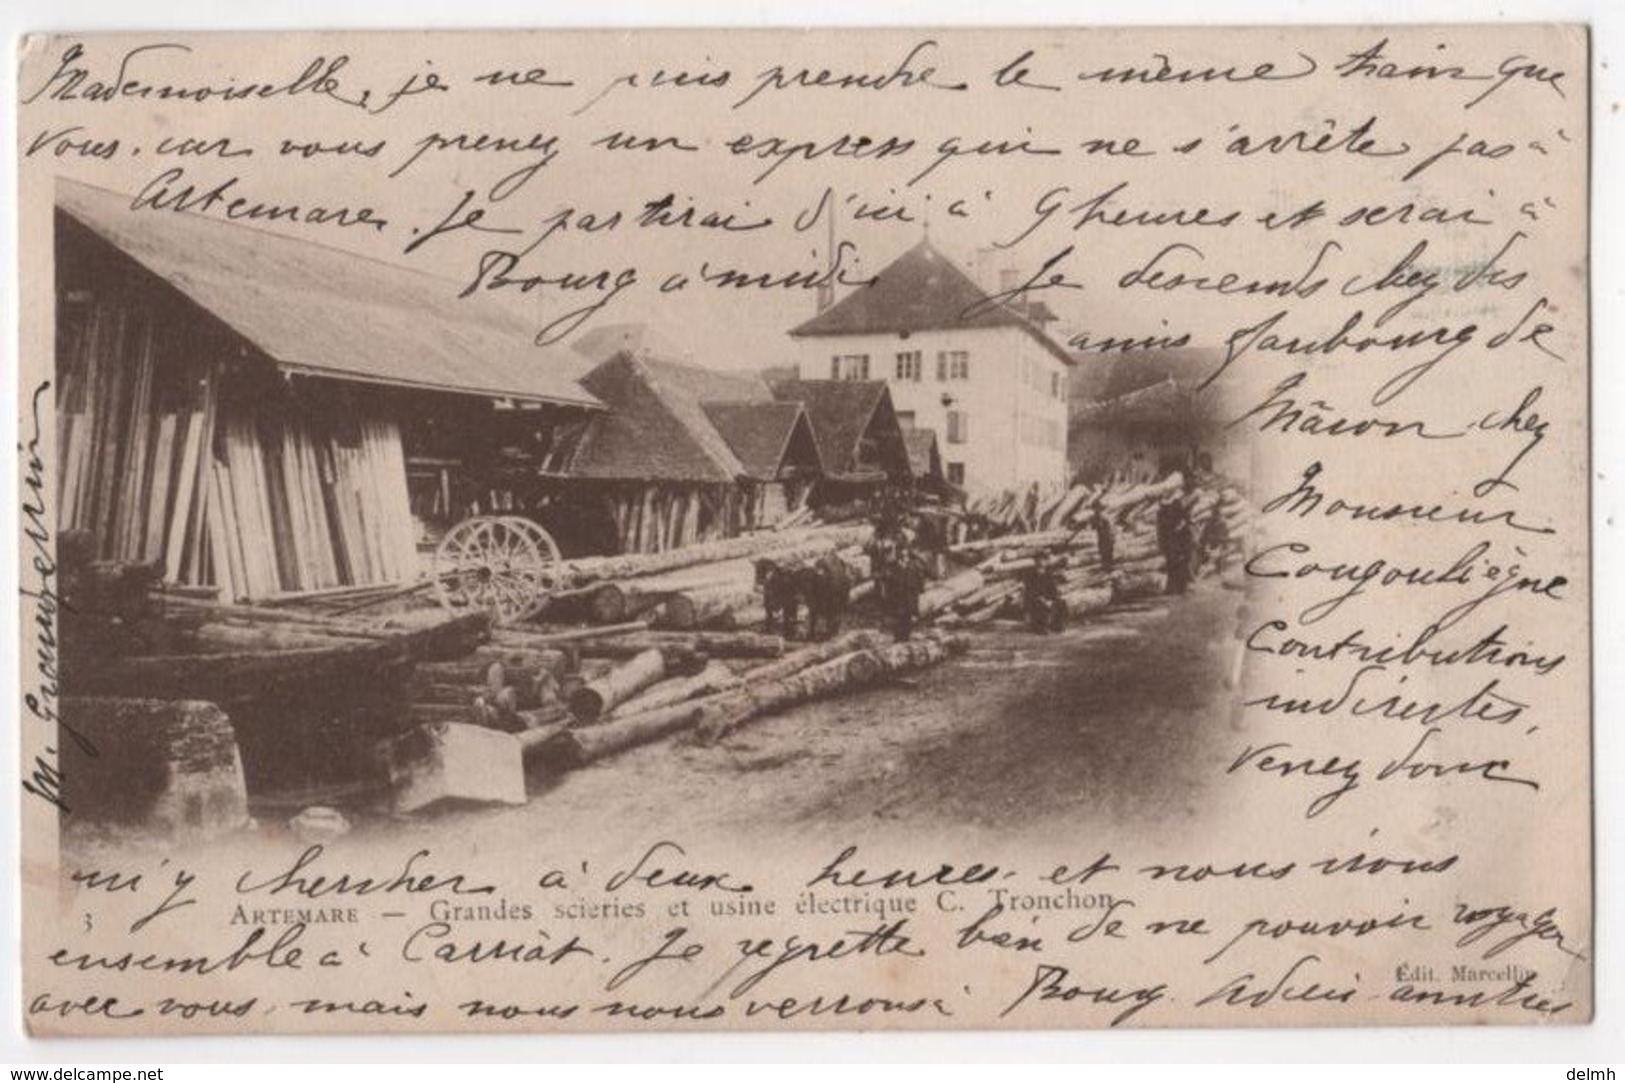 Mademoiselle, je ne puis prendre le même train que
vous, car vous prenez un express qui ne s'arrête pas à
Artemare. Je partirai d'ici à 9 heures et serai à
Bourg à midi. Je descends chez des
amis faubourg de
Mâcon chez
Monsieur
Contributions
indirectes,
Venez donc
m'y chercher à deux heures et nous irons
3 ARTEMARE — Grandes scieries et usine électrique C. Tronchon
ensemble à Carriat. Je regrette bien de ne pouvoir voyager
Édit. Marcellin
avec vous, mais nous nous verrons à Bourg. Adieu amitiés
M.
www.delcampe.net
delmh